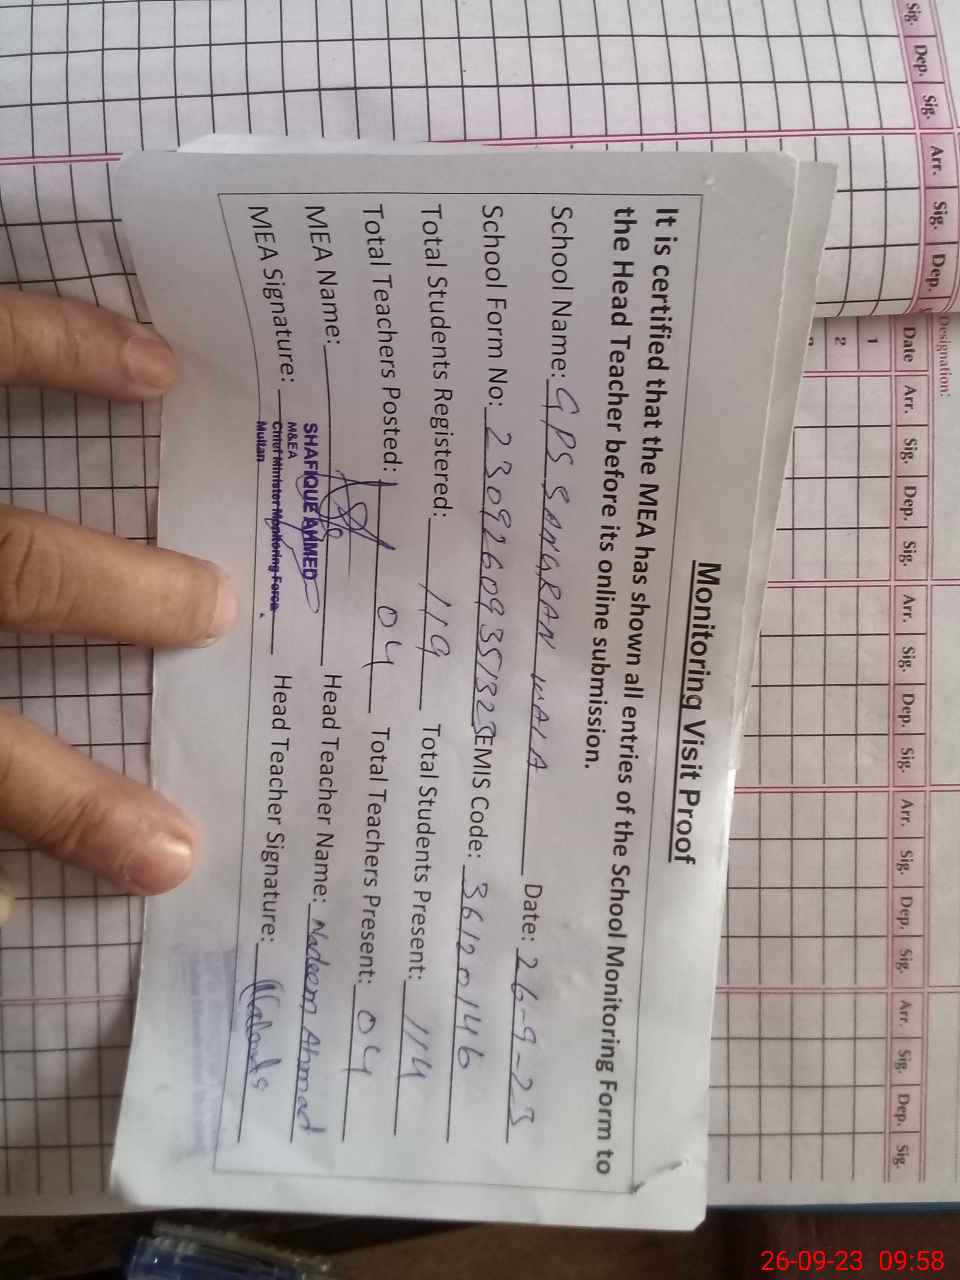 Monitoring Visit Proof
It is certified that the MEA has shown all entries of the School Monitoring Form to
the Head Teacher before its online submission.
School Name: GPS SANGRAN WALA Date: 26-9-23
School Form No: 230926093551323 EMIS Code: 36120146
Total Students Registered: 119 Total Students Present: 114
Total Teachers Posted: 04 Total Teachers Present: 04
MEA Name: Head Teacher Name: Nadeem Ahmad
SHAFIQUE AHMED
M&EA
MEA Signature: Head Teacher Signature:
Chief Minister Monitoring Force
Multan
Sig. Dep. Sig. Arr. Sig. Dep.
Designation:
Date Arr. Sig. Dep. Sig. Arr. Sig. Dep. Sig. Arr. Sig. Dep. Sig. Arr. Sig. Dep. Sig.
1
2
26-09-23 09:58